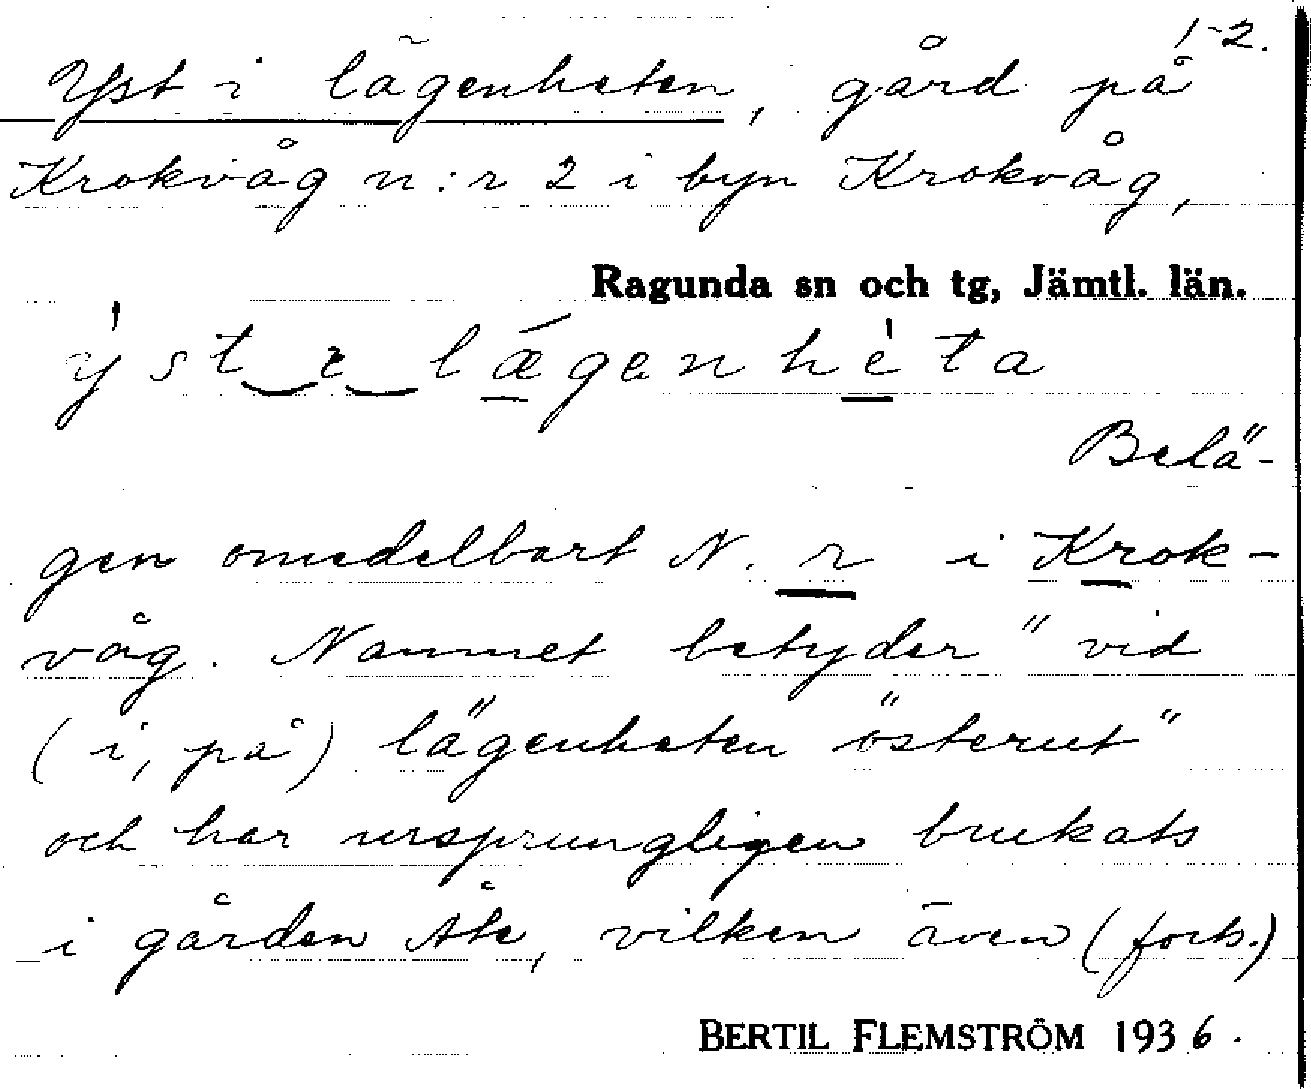 1-2.
Yst i lägenheten, gård på
Krokvåg n:r 2 i byn Krokvåg,
Ragunda sn och tg, Jämtl. län.
ýst‿ɛ‿lǽgenhèta
Belä-
gen omedelbart N. r i Krok-
våg. Namnet betyder "vid
(i, på) lägenheten österut"
och har ursprungligen brukats
i gården Åke, vilken även (forts.)
BERTIL FLEMSTRÖM 1936.